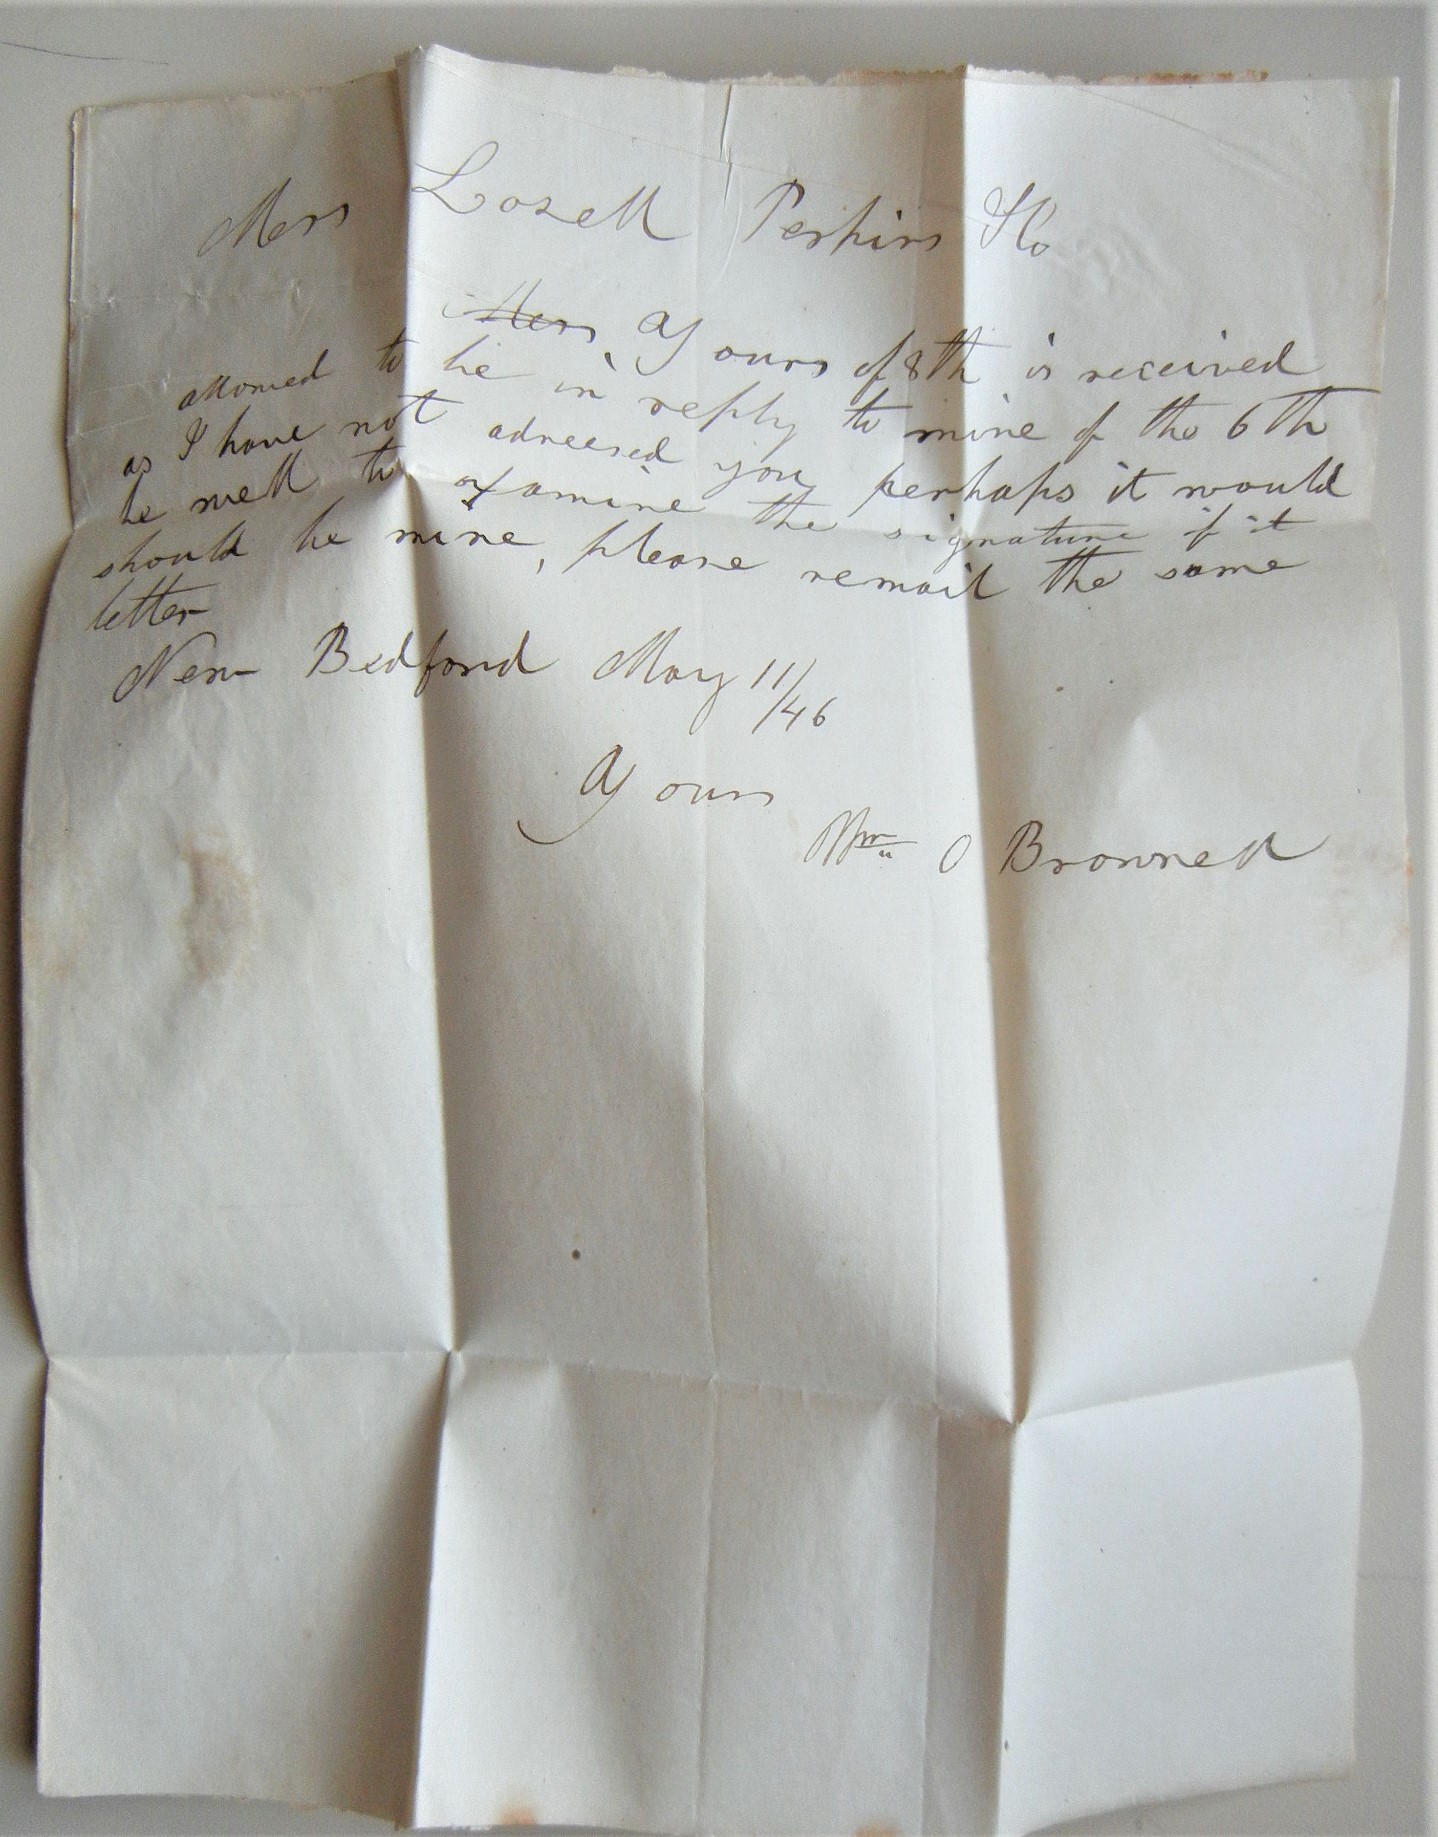 Mess Lazell Perkins & Co
Mess, Yours of 8th is received
allowed to be in reply to mine of the 6th
as I have not adreesed you perhaps it would
be well to examine the signature if it
should be mine, please remail the same
letter
New Bedford May 11/46
Yours
Wm O Brownell